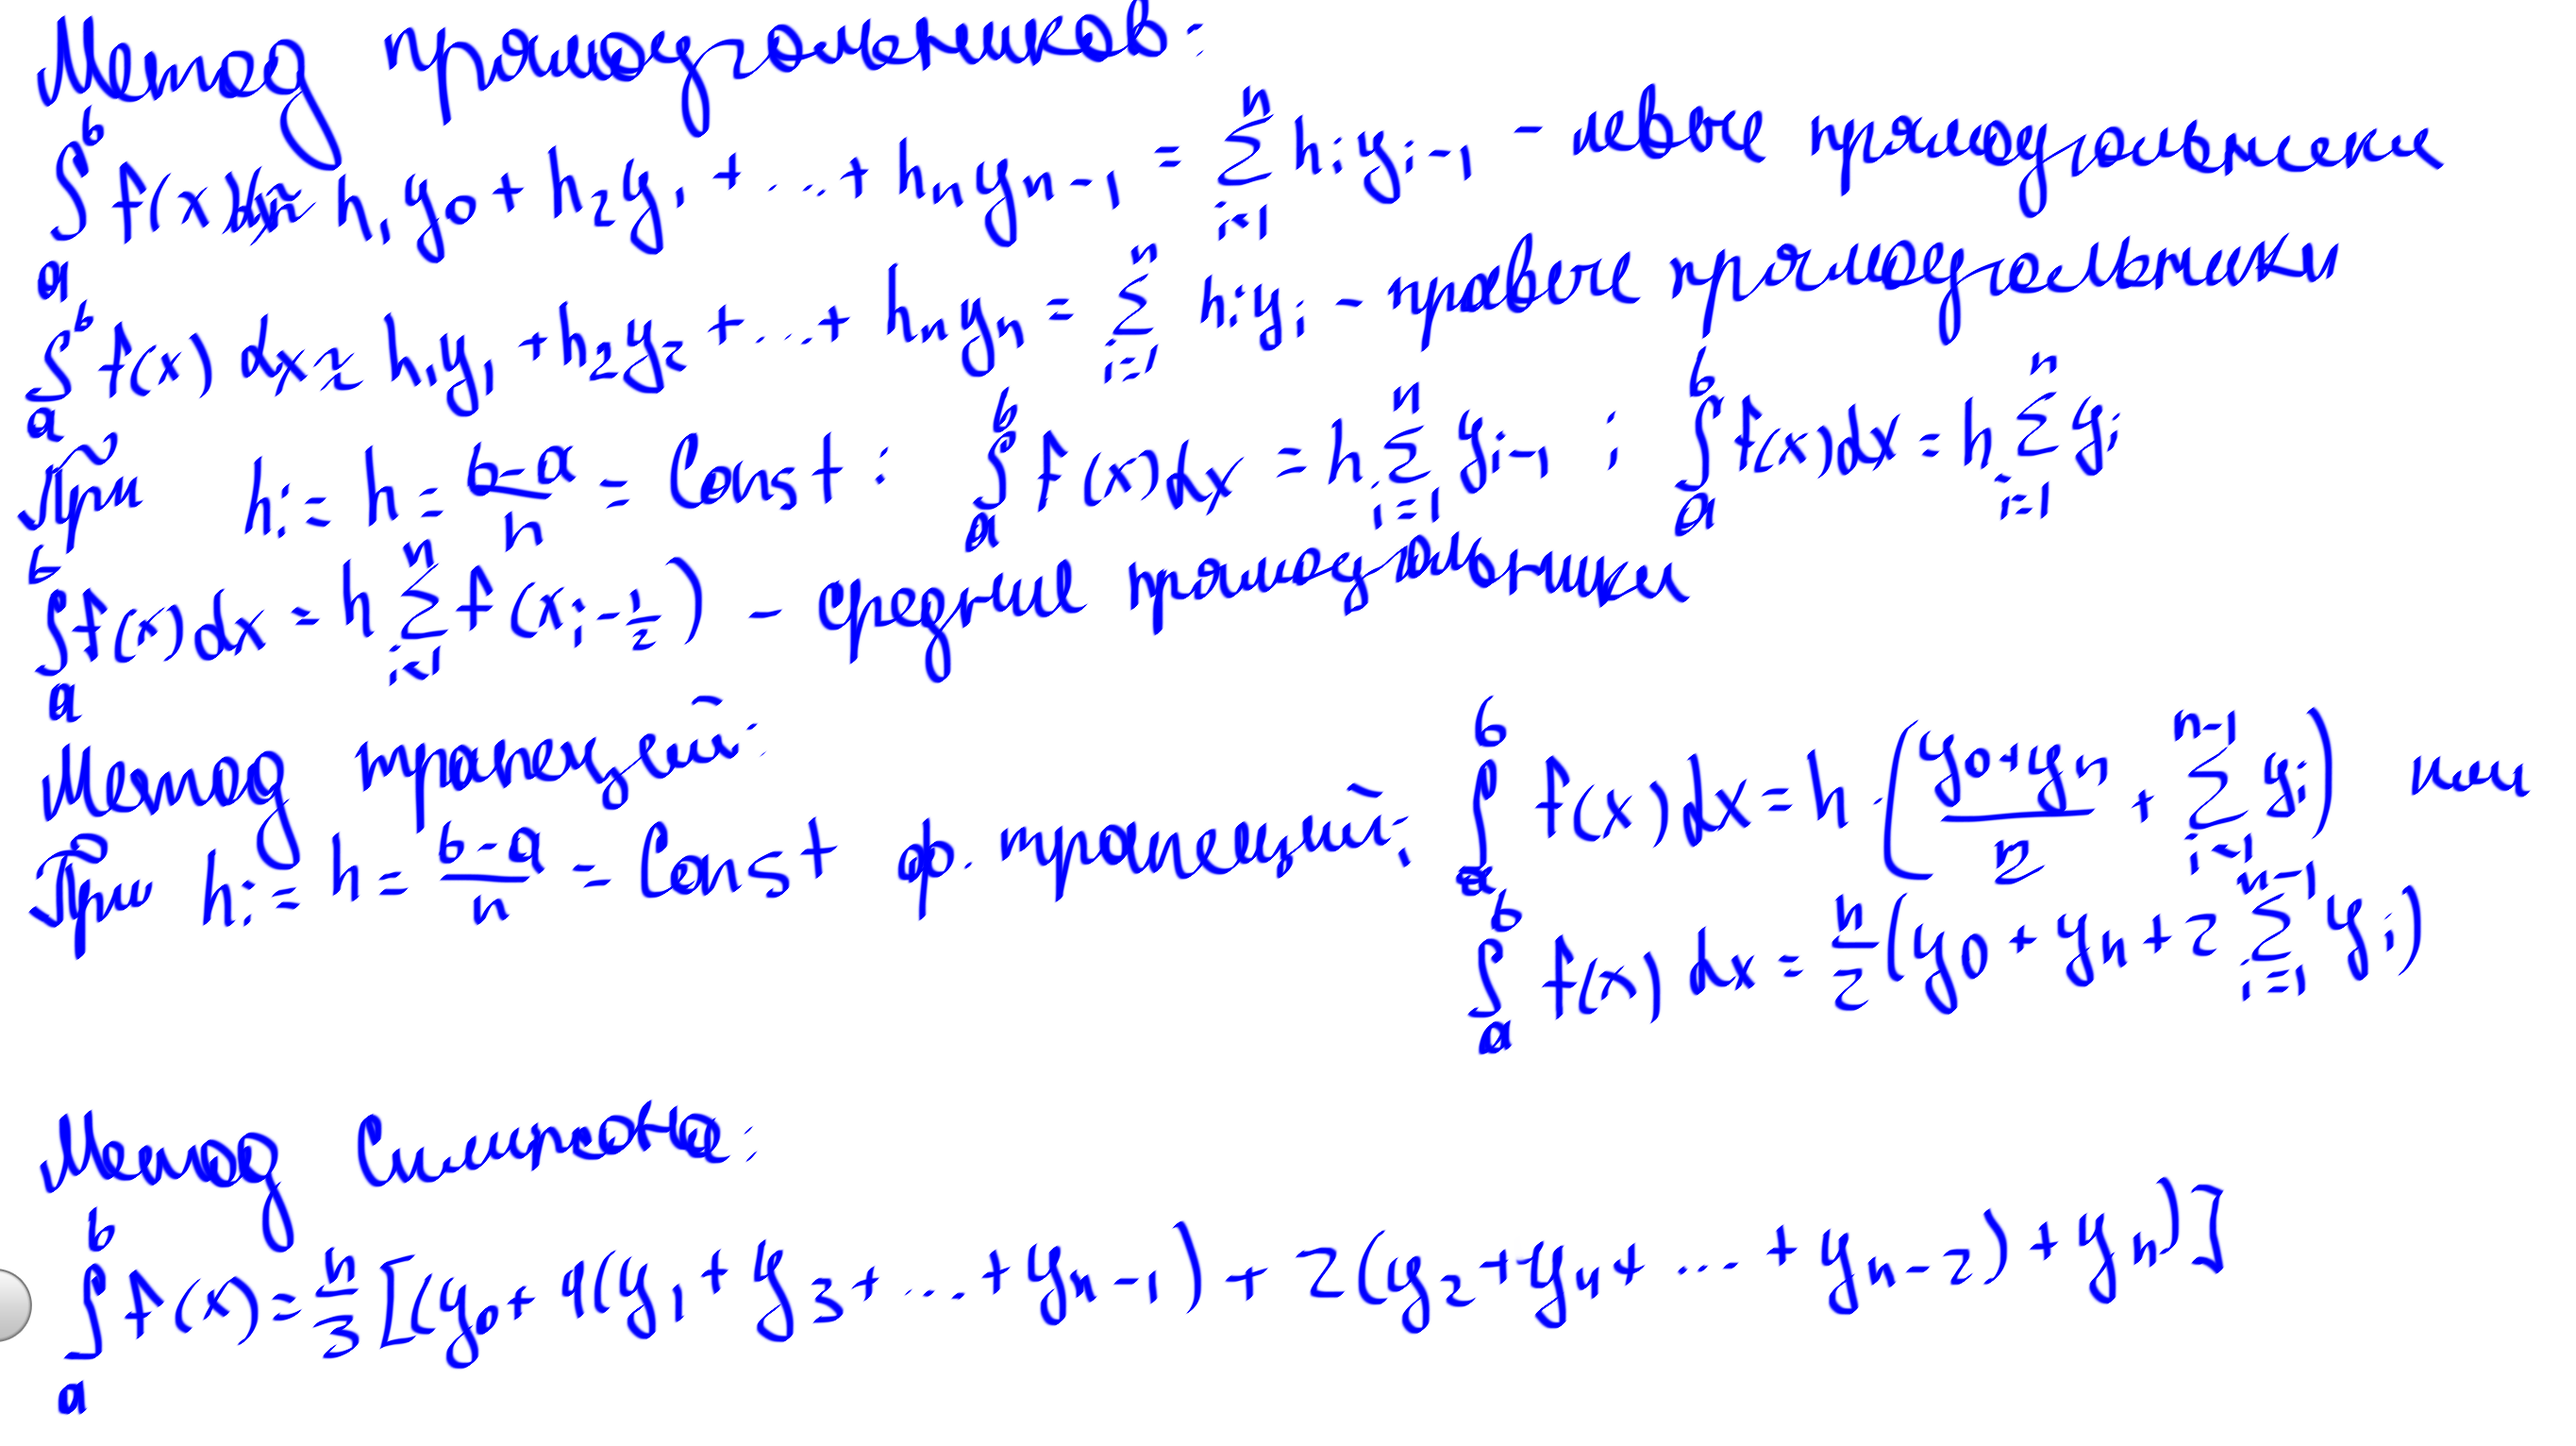 Метод прямоугольников:
∫_a^b f(x)dx ≈ h₁y₀ + h₂y₁ + ... + hₙyₙ₋₁ = Σ_{i=1}^n hᵢyᵢ₋₁ - левые прямоугольники
∫_a^b f(x) dx ≈ h₁y₁ + h₂y₂ + ... + hₙyₙ = Σ_{i=1}^n hᵢyᵢ - правые прямоугольники
При hᵢ = h = (b-a)/n = Const : ∫_a^b f(x)dx = h Σ_{i=1}^n yᵢ₋₁ ; ∫_a^b f(x)dx = h Σ_{i=1}^n yᵢ
∫_a^b f(x)dx = h Σ_{i=1}^n f(xᵢ - 1/2) - средние прямоугольники
Метод трапеций:
При hᵢ = h = (b-a)/n = Const ф. трапеций: ∫_a^b f(x)dx = h · ((y₀+yₙ)/2 + Σ_{i=1}^{n-1} yᵢ) или
∫_a^b f(x) dx = h/2 (y₀ + yₙ + 2 Σ_{i=1}^{n-1} yᵢ)
Метод Симпсона:
∫_a^b f(x) = h/3 [(y₀ + 4(y₁ + y₃ + ... + yₙ₋₁) + 2(y₂ + y₄ + ... + yₙ₋₂) + yₙ)]